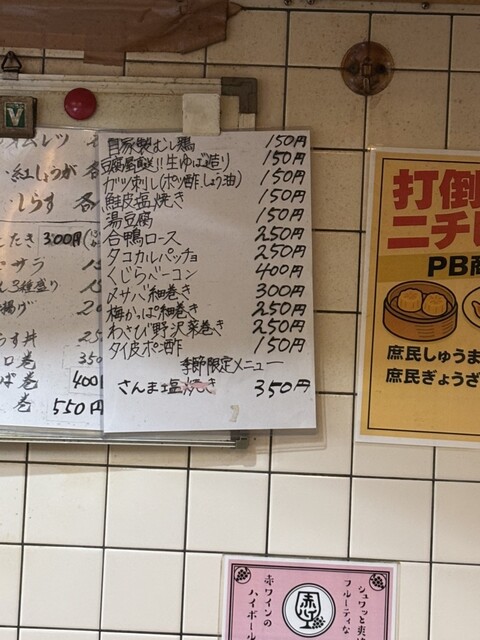 自家製むし鶏 150円
豆腐屋直送!!生ゆば造り 150円
ガツ刺し(ポン酢,しょう油) 150円
鮭皮塩焼き 150円
湯豆腐 150円
合鴨ロース 250円
タコカルパッチョ 250円
くじらベーコン 400円
〆サバ細巻き 300円
梅かっぱ細巻き 250円
わさび野沢菜巻き 250円
タイ皮ポン酢 150円
季節限定メニュー
さんま塩焼き 350円
オムレツ
紅しょうが 各
しらす 各
たき 300円
サラ
3種盛り
揚げ
す丼
ロ巻 350
ば巻 400
巻 550円
打倒
ニチ
PB商
庶民しゅうま
庶民ぎょうざ
シュワッと爽
フルーティな
赤
赤ワインの
ハイボール